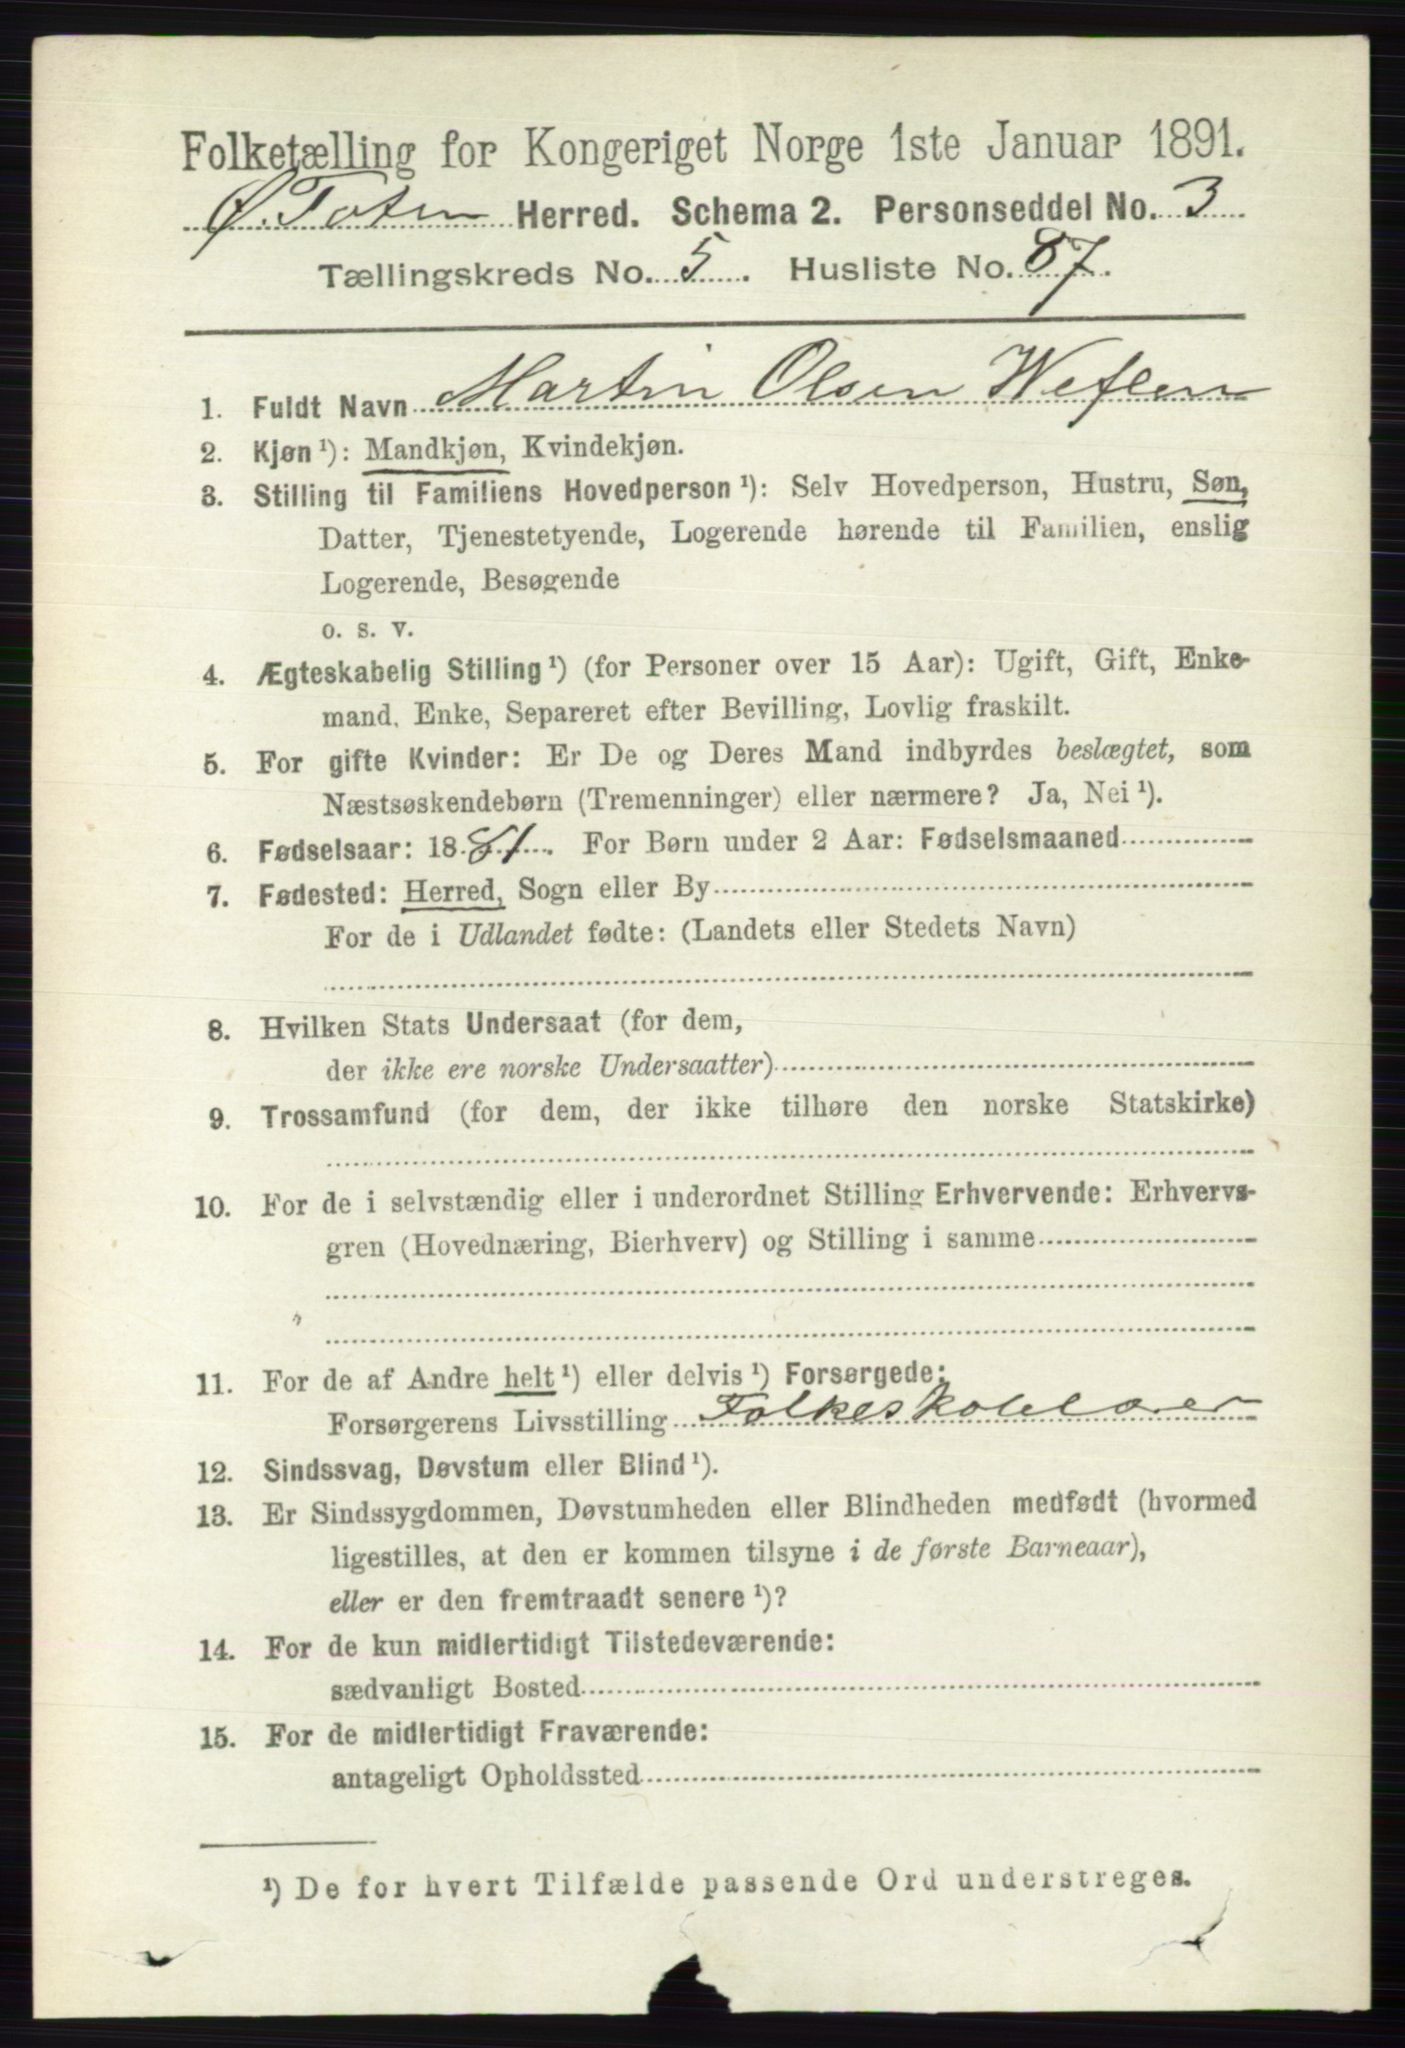 Folketælling for Kongeriget Norge 1ste Januar 1891.
Ø. Toten Herred. Schema 2. Personseddel No. 3
Tællingskreds No. 5. Husliste No. 87.
1. Fuldt Navn Martin Olsen Weflen
2. Kjøn¹): Mandkjøn, Kvindekjøn.
3. Stilling til Familiens Hovedperson¹): Selv Hovedperson, Hustru, Søn,
Datter, Tjenestetyende, Logerende hørende til Familien, enslig
Logerende, Besøgende
o. s. v.
4. Ægteskabelig Stilling¹) (for Personer over 15 Aar): Ugift, Gift, Enke-
mand, Enke, Separeret efter Bevilling, Lovlig fraskilt.
5. For gifte Kvinder: Er De og Deres Mand indbyrdes beslægtet, som
Næstsøskendebørn (Tremenninger) eller nærmere? Ja, Nei¹).
6. Fødselsaar: 1881. For Børn under 2 Aar: Fødselsmaaned
7. Fødested: Herred, Sogn eller By
For de i Udlandet fødte: (Landets eller Stedets Navn)
8. Hvilken Stats Undersaat (for dem,
der ikke ere norske Undersaatter)
9. Trossamfund (for dem, der ikke tilhøre den norske Statskirke)
10. For de i selvstændig eller i underordnet Stilling Erhvervende: Erhvervs-
gren (Hovednæring, Bierhverv) og Stilling i samme
11. For de af Andre helt¹) eller delvis¹) Forsørgede:
Forsørgerens Livsstilling Folkeskolelærer
12. Sindssvag, Døvstum eller Blind¹).
13. Er Sindssygdommen, Døvstumheden eller Blindheden medfødt (hvormed
ligestilles, at den er kommen tilsyne i de første Barneaar),
eller er den fremtraadt senere¹)?
14. For de kun midlertidigt Tilstedeværende:
sædvanligt Bosted
15. For de midlertidigt Fraværende:
antageligt Opholdssted
¹) De for hvert Tilfælde passende Ord understreges.